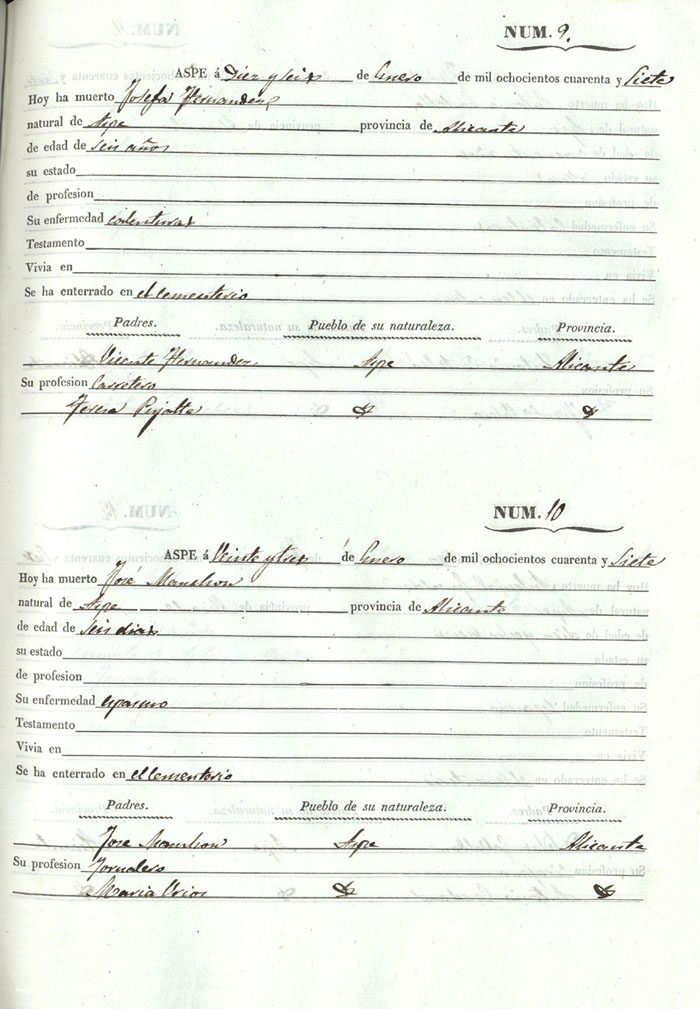 NUM. 9.
ASPE á Diez y seis de Enero de mil ochocientos cuarenta y Siete
Hoy ha muerto Josefa Hernandez
natural de Aspe provincia de Alicante
de edad de seis años
su estado
de profesion
Su enfermedad calenturas
Testamento
Vivia en
Se ha enterrado en el Cementerio
Padres. Pueblo de su naturaleza. Provincia.
Vicente Hernandez Aspe Alicante
Su profesion Carretero
Teresa
NUM. 10
ASPE á Veinte y tres de Enero de mil ochocientos cuarenta y Siete
Hoy ha muerto Jose
natural de Aspe provincia de Alicante
de edad de seis dias
su estado
de profesion
Su enfermedad espasmo
Testamento
Vivia en
Se ha enterrado en el Cementerio
Padres. Pueblo de su naturaleza. Provincia.
Jose Aspe Alicante
Su profesion Jornalero
Maria Urios